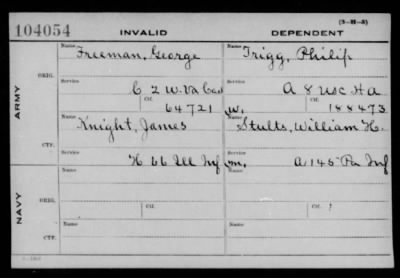 104054 INVALID DEPENDENT (3-M-3)
ARMY
ORIG.
Name
Freeman, George
Name
Trigg, Philip
Service
C 2 W. Va Cav
Service
A 8 USC H A
Ctf.
64721
Ctf.
W. 188473
CTF.
Name
Knight, James
Name
Stults, William H.
Service
H 66 Ill Inf
Service
m. A 145 Pa Inf
NAVY
ORIG.
Name
Name
Ctf.
Ctf.
CTF.
Name
Name